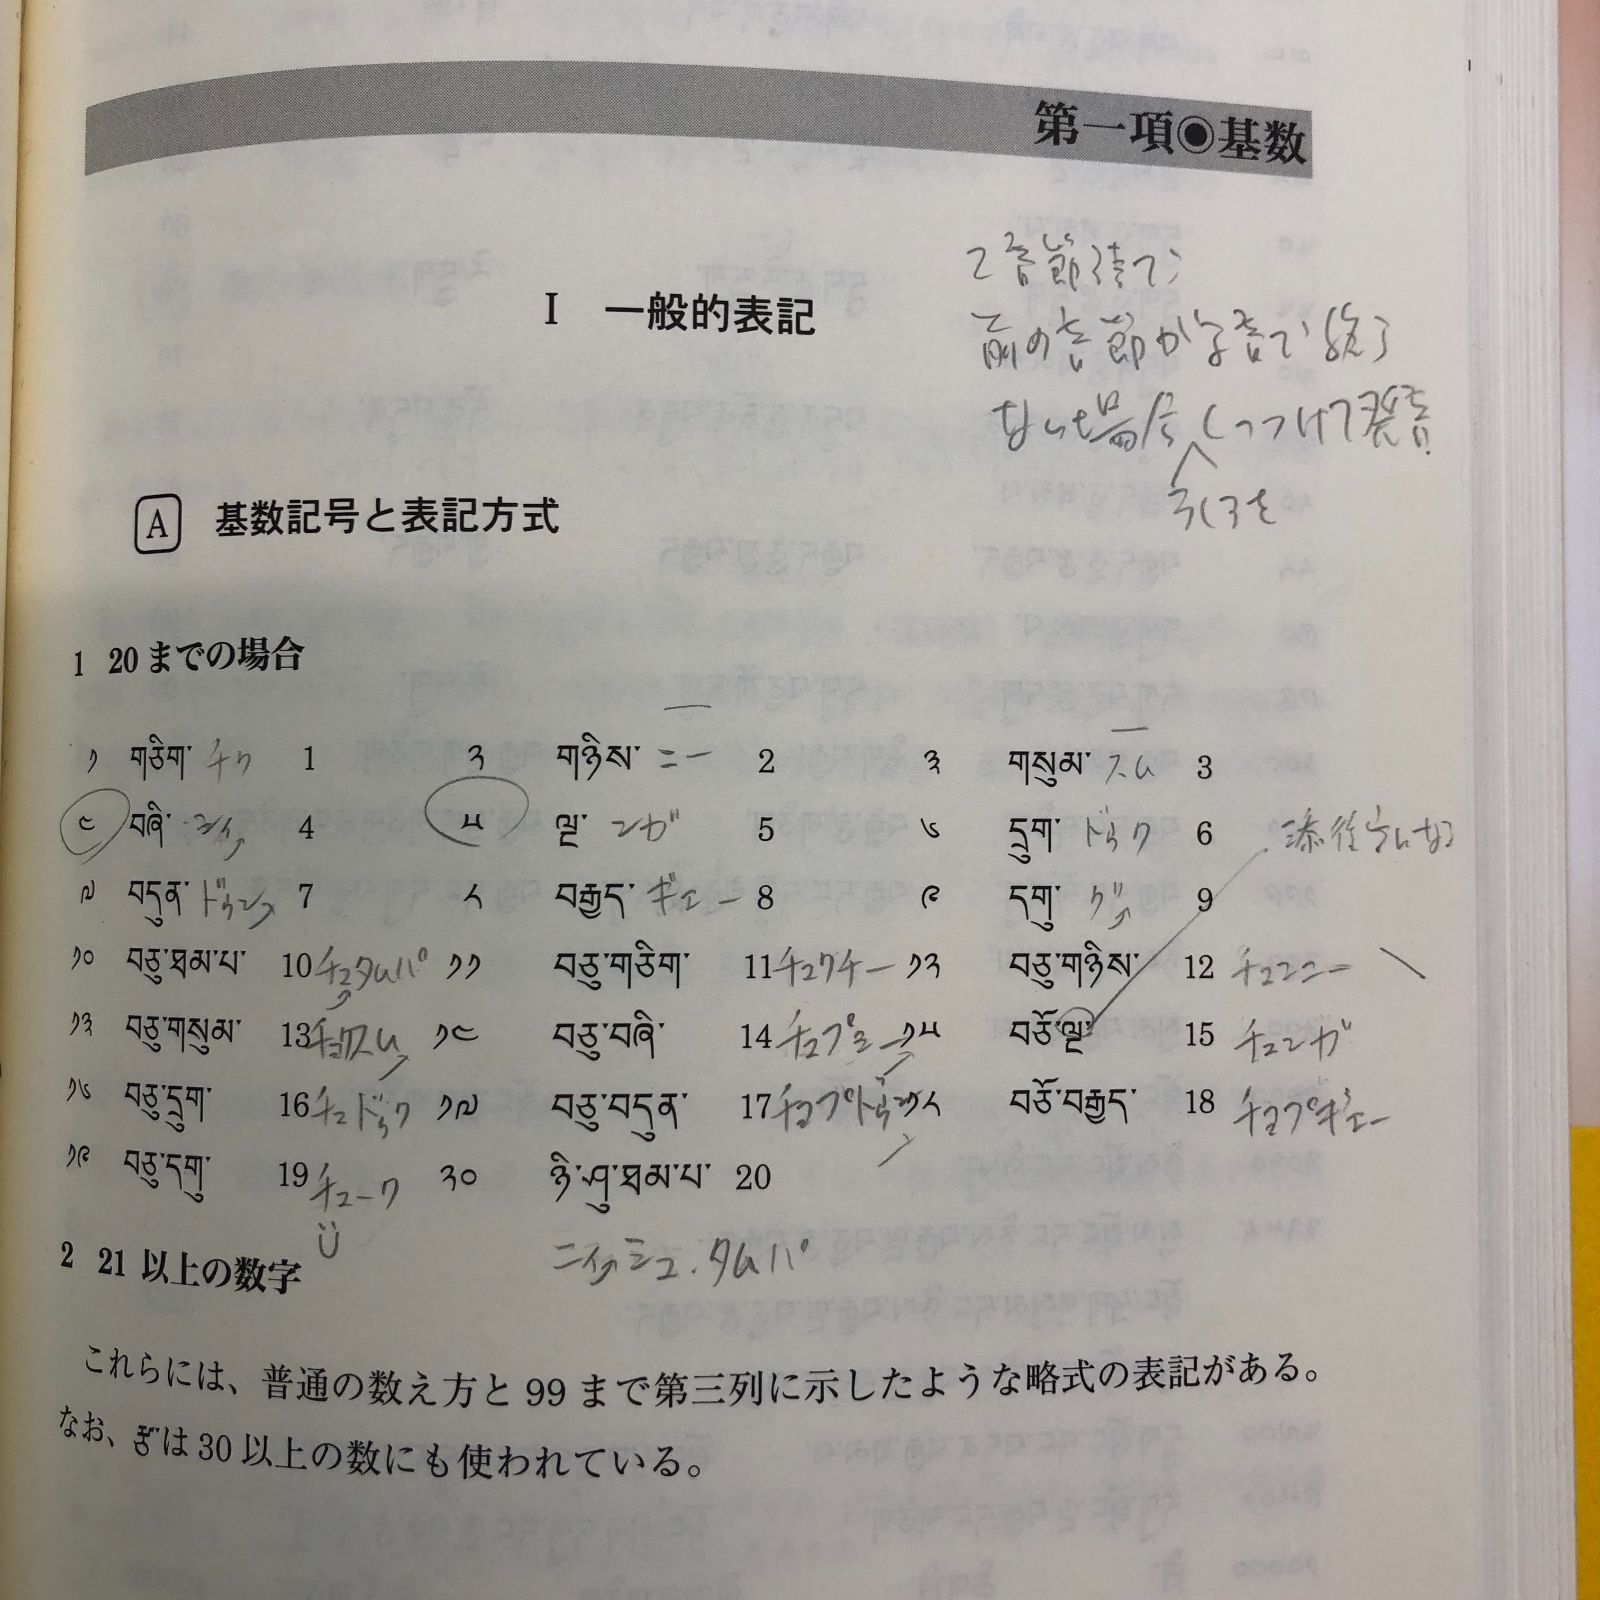 第一項◉基数
2音節語で
前の音節が子音で終了
ない場合くっつけて発音
I 一般的表記
A 基数記号と表記方式
1 20までの場合
༡ གཅིག་ チク 1 ༢ གཉིས་ ニー 2 ༣ གསུམ་ スム 3
༤ བཞི་ シィ 4 ༥ ལྔ་ ンガ 5 ༦ དྲུག་ ドゥク 6
༧ བདུན་ ドゥン 7 ༨ བརྒྱད་ ギェー 8 ༩ དགུ་ グ 9
༡༠ བཅུ་ཐམ་པ་ 10 チュタムパ ༡༡ བཅུ་གཅིག་ 11 チュクチー ༡༢ བཅུ་གཉིས་ 12 チュンニー
༡༣ བཅུ་གསུམ་ 13 チュクスム ༡༤ བཅུ་བཞི་ 14 チュプシー ༡༥ བཅོ་ལྔ་ 15 チュンガ
༡༦ བཅུ་དྲུག་ 16 チュドゥク ༡༧ བཅུ་བདུན་ 17 チョプドゥン ༡༨ བཅོ་བརྒྱད་ 18 チョプギェー
༡༩ བཅུ་དགུ་ 19 チューク ༢༠ ཉི་ཤུ་ཐམ་པ་ 20
ニィシュ.タムパ
2 21以上の数字
これらには、普通の数え方と99まで第三列に示したような略式の表記がある。
なお、は30以上の数にも使われている。